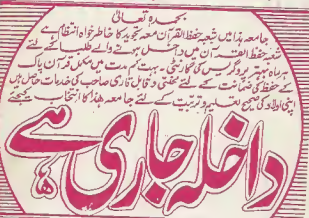 بحمدہ تعالیٰ
جامعہ ہذا میں شعبہ حفظ القرآن معہ تجوید کا خاطر خواہ انتظام ہے
شعبہ حفظ القرآن میں داخل ہونے والے طلبا کے لئے
ہر ماہ بہتر پروگریس کی گارنٹی۔ بہت کم مدت میں مکمل قرآن پاک
کے حفظ کی ضمانت کے لئے محنتی و قابل قاری صاحب کی خدمات حاصل ہیں
اپنی اولاد کی صحیح تعلیم و تربیت کے لئے جامعہ ھٰذا کا انتخاب کیجئے
داخلہ جاری ہے